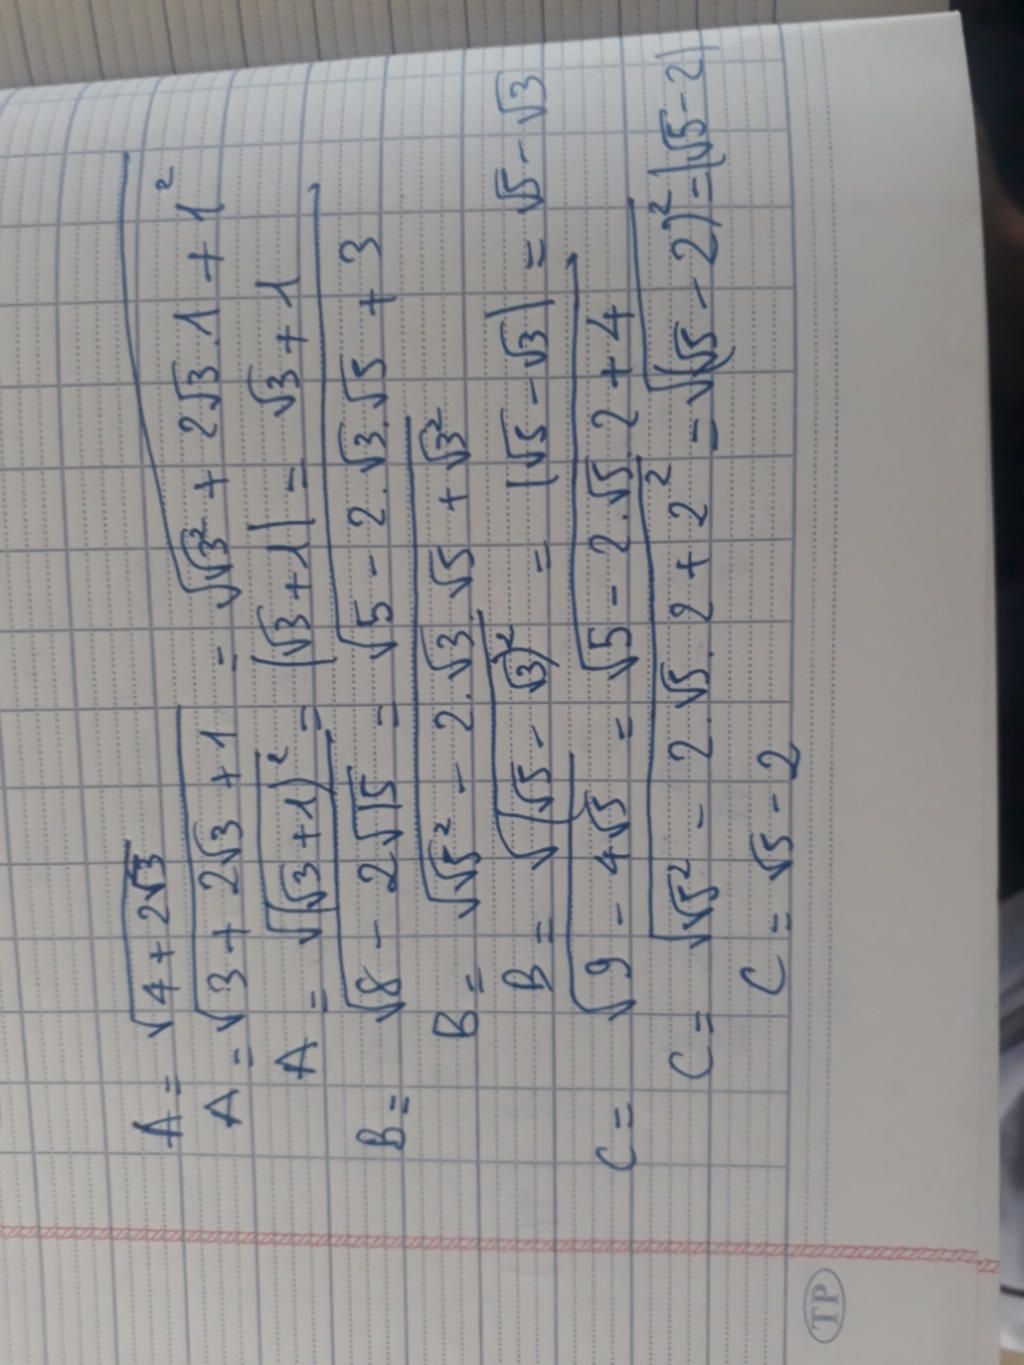 A = √(4 + 2√3)
A = √(3 + 2√3 + 1) = √(√3² + 2√3 . 1 + 1²)
A = √((√3 + 1)²) = |√3 + 1| = √3 + 1
B = √(8 - 2√15) = √(5 - 2 . √3 . √5 + 3)
B = √(√5² - 2 . √3 . √5 + √3²)
B = √((√5 - √3)²) = |√5 - √3| = √5 - √3
C = √(9 - 4√5) = √(5 - 2 . √5 . 2 + 4)
C = √(√5² - 2 . √5 . 2 + 2²) = √((√5 - 2)²) = |√5 - 2|
C = √5 - 2
TP